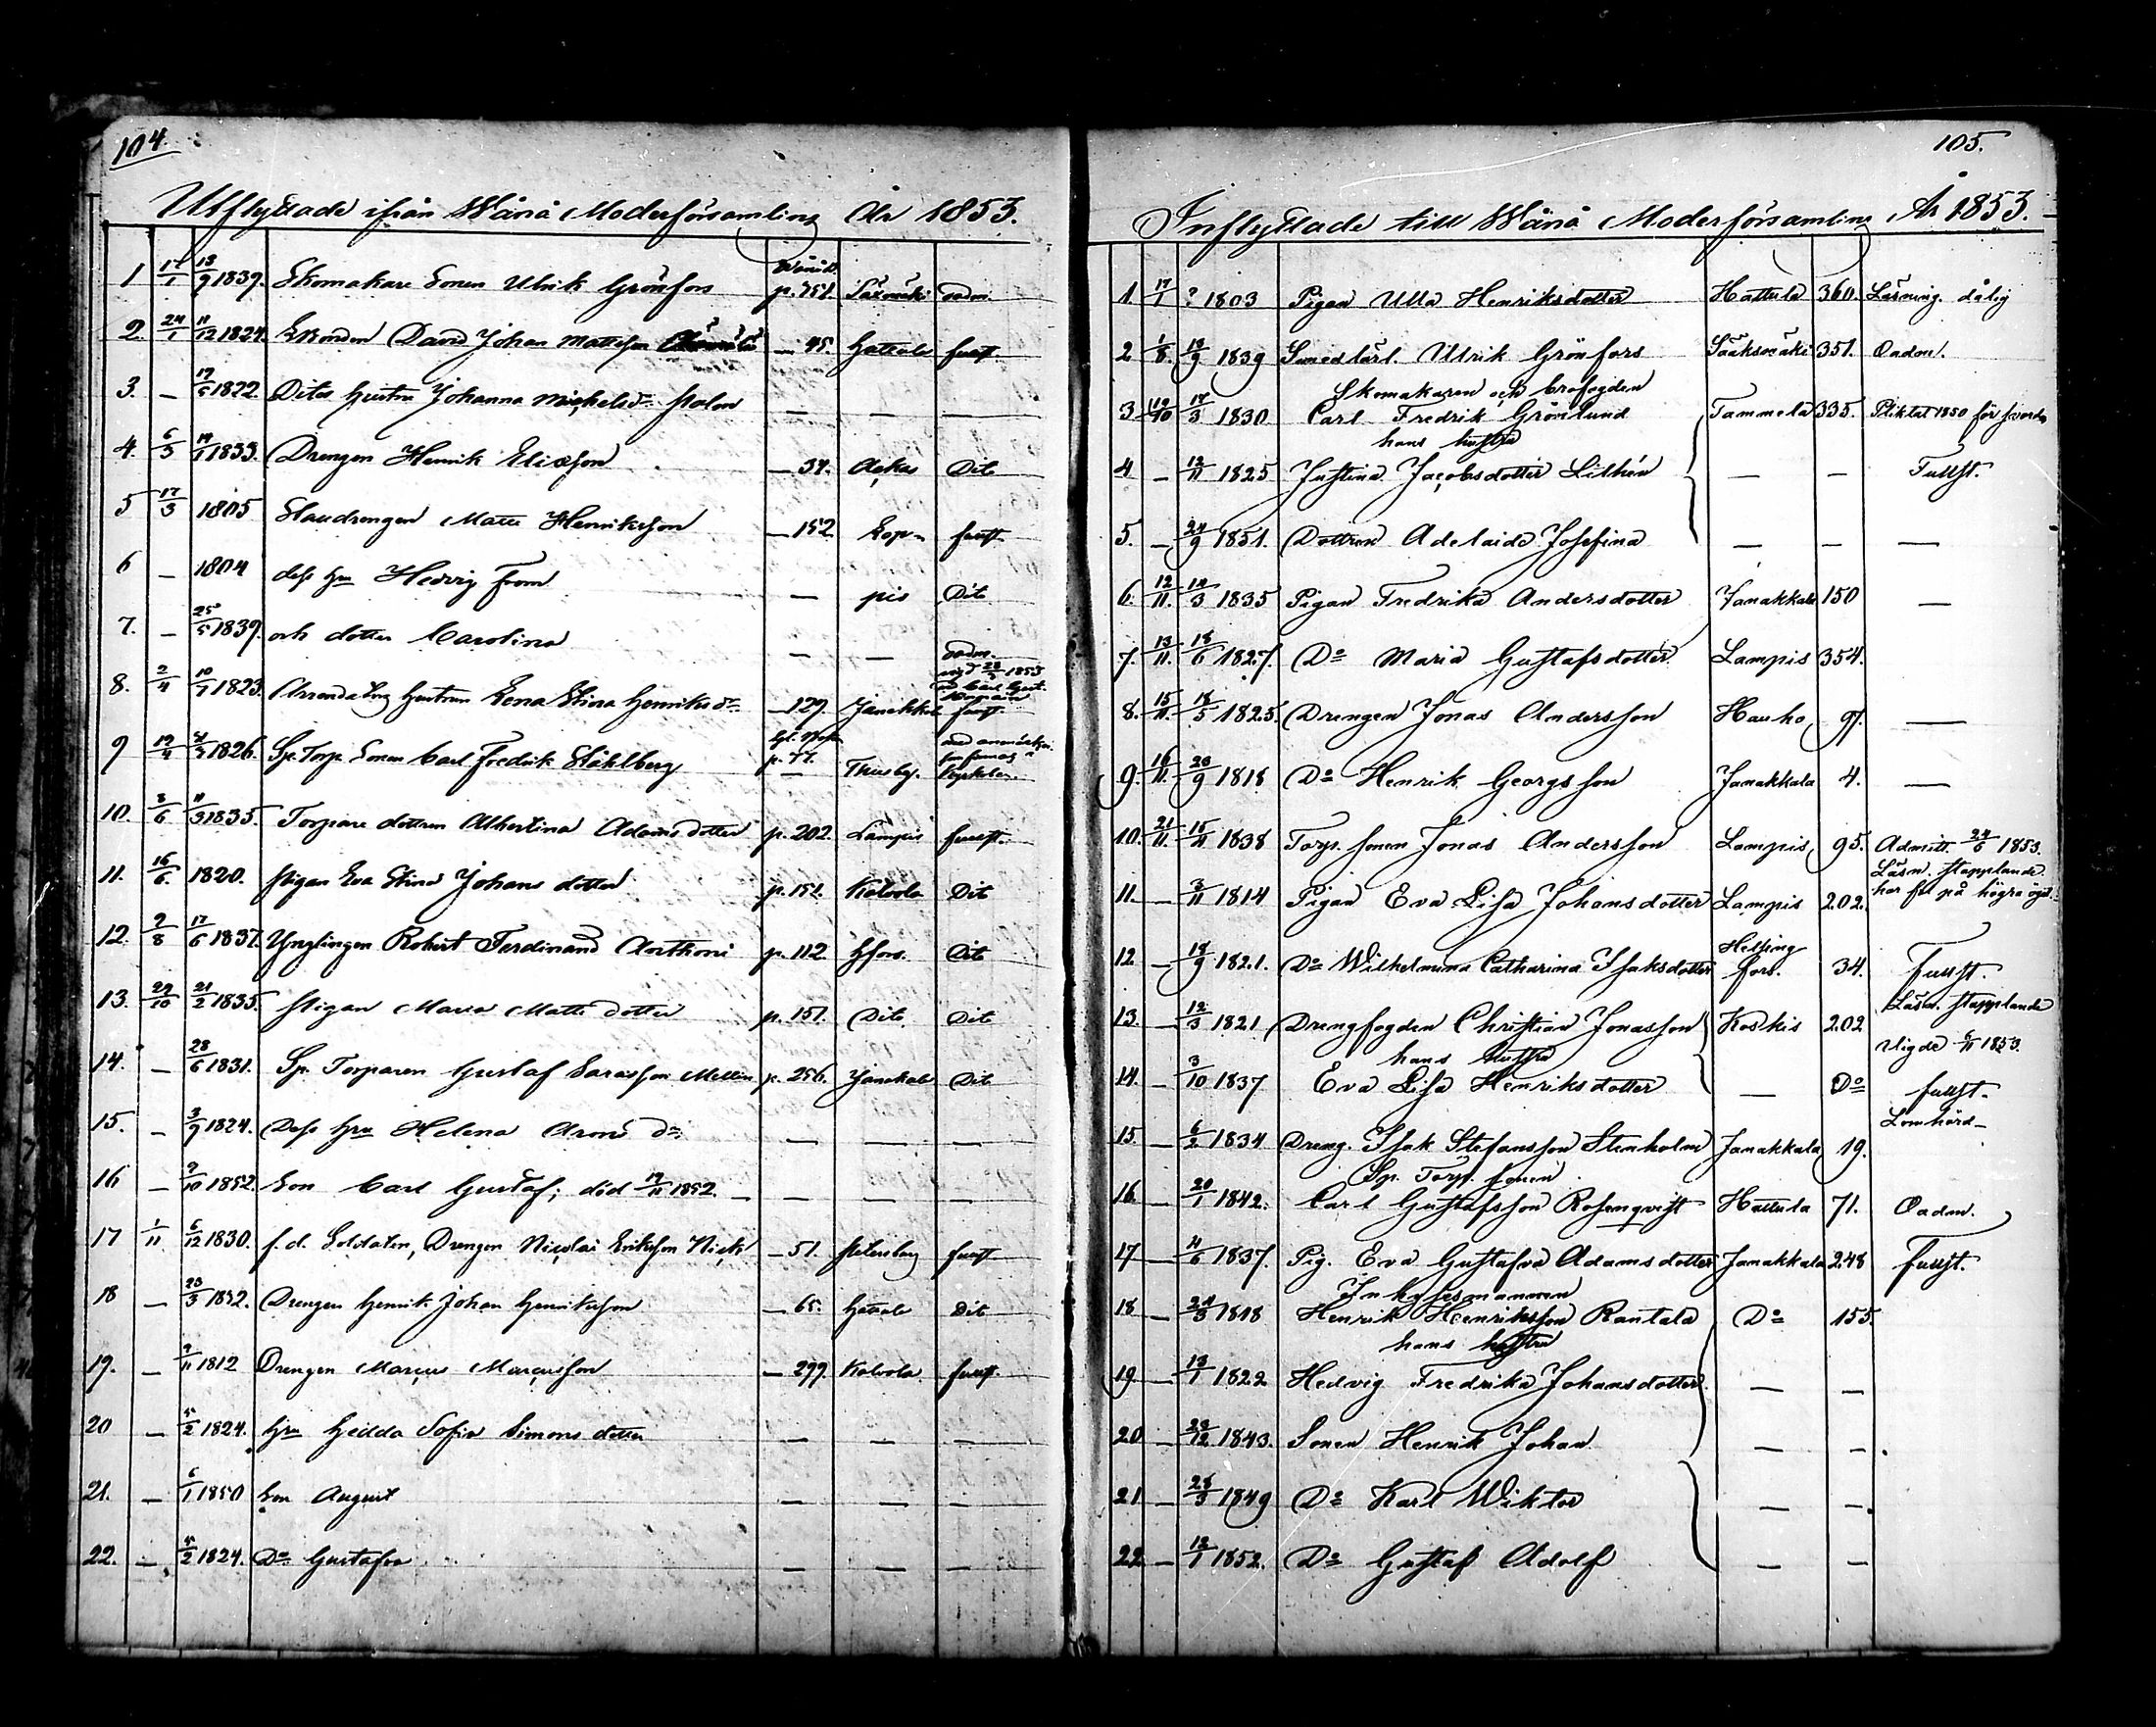 104.
Utflyttade ifrån Wånå Moderförsamling År 1853.
1 17/1 13/9 1839. Skomakare Sonen Ulrik Grönfors p. 351. Säxmäki oadm.
2. 24/1 11/12 1824. David Johan Mattsson — 45. Hattula frejd.
3. — 17/5 1822. Dites hustru Johanna Michelsdr — — —
4. 6/3 14/1 1833. Drengen Henrik Eliasson — 34. Ackas Dito
5 17/3 1805 Matts Henriksson — 152 Kop-
6 — 1804 dess hu Hedvig From — pis Dito
7. — 25/5 1839. och dotter Carolina — —
oadm.
8. 2/4 10/7 1823. hustrun Lena Stina Henriksdr — 129. Janakkala
9 19/4 1826. Sp. Torp. Sonen Carl Fredrik Ståhlberg p. 77. Thusby.
10. 3/6 1835. Torpare dottren Albertina Adamsdotter p. 202. Lampis
11. 16/6. 1820. Pigan Eva Stina Johans dotter p. 151. Kalvola Dito
12. 2/8 17/6 1837. Ynglingen Robert Ferdinand Anthoni p. 112. Hfors. Dito
13. 29/10 21/2 1835. Pigan Maria Matts dotter p. 151. Dito Dito
14. — 28/6 1831. Sp. Torparen Gustaf p. 256. Janakala Dito
15. — 3/9 1824. Dess hru Helena Arons dr — — —
16 — 9/10 1852. Son Carl Gustaf; död 1852. — — — —
17 1/11 6/12 1830. f.d. Soldaten, Drengen Nicolai Eriksson — 51. Petersburg
18 — 23/3 Drengen Henrik Johan Henriksson — 65. Hattula Dito
19. — 9/11 1812 Drengen Marcus Marcusson — 299. Kalvola
20 — 5/2 1824. hru Hedda Sofia Simons dotter — — —
21. — 6/1 1850 Son August — — —
22. — 5/2 1824. Do Gustafva — — —
105.
Inflyttade till Wånå Moderförsamling År 1853.
1. 17/1 ? 1803 Pigan Ulla Henriksdotter Hattula 360. Läsning. dålig
2 1/8. 13/9 1839 Ulrik Grönfors Sääksmäki 351. Oadm.
Skomakaren och
3 19/10 17/3 1830 Carl Fredrik Grönlund Tammela 335. Pliktat 1850 för
hans hustru
4 — 12/11 1825 Justina Jacobsdotter Lithén — — Fullst.
5. — 24/9 1851. Dottren Adelaide Josefina — — —
6. 12/11. 14/3 1835 Pigan Fredrika Andersdotter Janakkala 150 —
7. 13/11. 18/6 1827. Do Maria Gustafsdotter Lampis 354.
8. 15/11. 18/5 1825. Drengen Jonas Andersson Hauho 97. —
9. 16/11. 20/9 1818 Do Henrik Georgsson Janakkala 4. —
10. 21/11. 15/4 1838 Torp. sonen Jonas Andersson Lampis 95. Admitt. 24/6 1853.
Läsn. stapplande.
11. — 3/11 1814 Pigan Eva Lisa Johansdotter Lampis 202. har fel på högra ögat.
Helsing
12 — 18/9 1821. Do Wilhelmina Catharina Isaksdotter fors. 34. Fullst.
Läsn. stapplande
13. — 12/3 1821 Drengfogden Christian Jonasson Koskis 202
hans hustru Vigde 6/11 1853.
14. — 3/10 1837 Eva Lisa Henriksdotter — Do fullst.
Lomhörd
15. — 6/2 1834 Dreng. Isak Stefansson Stenholm Janakkala 19.
Sp. Torp. sonen
16. — 20/1 1842. Carl Gustafsson Rosenqvist Hattula 71. Oadm.
17 — 4/6 1837. Pig. Eva Gustafva Adamsdotter Janakkala 248 Fullst.
Inhysesmannen
18. — 24/3 1818 Henrik Henriksson Rantala Do 155.
hans hustru
19. — 13/1 1822 Hedvig Fredrika Johansdotter. — —
20 — 29/12 1843. Sonen Henrik Johan — —
21 — 28/3 1849 Do Karl Wiktor — —
22. — 12/1 1852. Do Gustaf Adolf — —